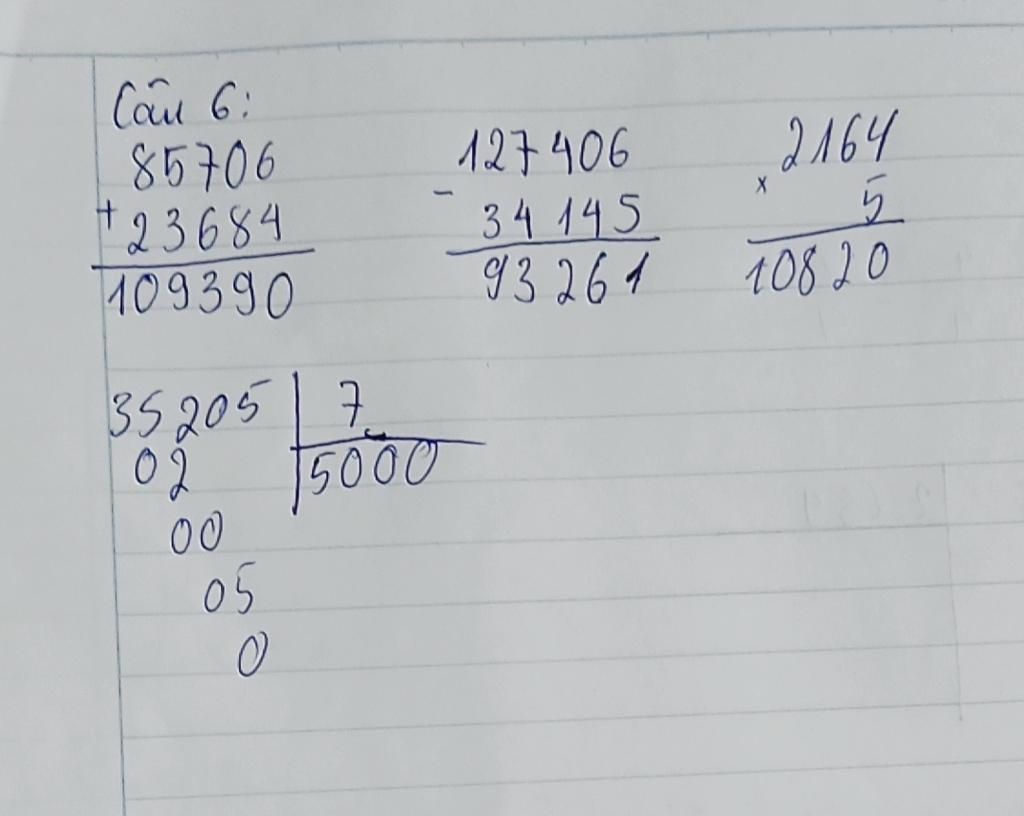 Câu 6:
85706
+ 23684
109390
127406
- 34145
93261
2164
x 5
10820
35205 | 7
02 | 5000
00
05
0